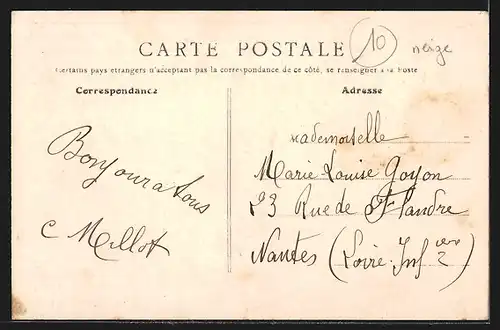 CARTE POSTALE
10
neige
Certains pays etrangers n'acceptant pas la correspondance de ce côté, se renseigner à la Poste
Correspondance
Adresse
Bonjour a tous
C Millot
Mademoiselle
Marie-Louise Goyon
23 Rue de Flandre
Nantes (Loire-Inf